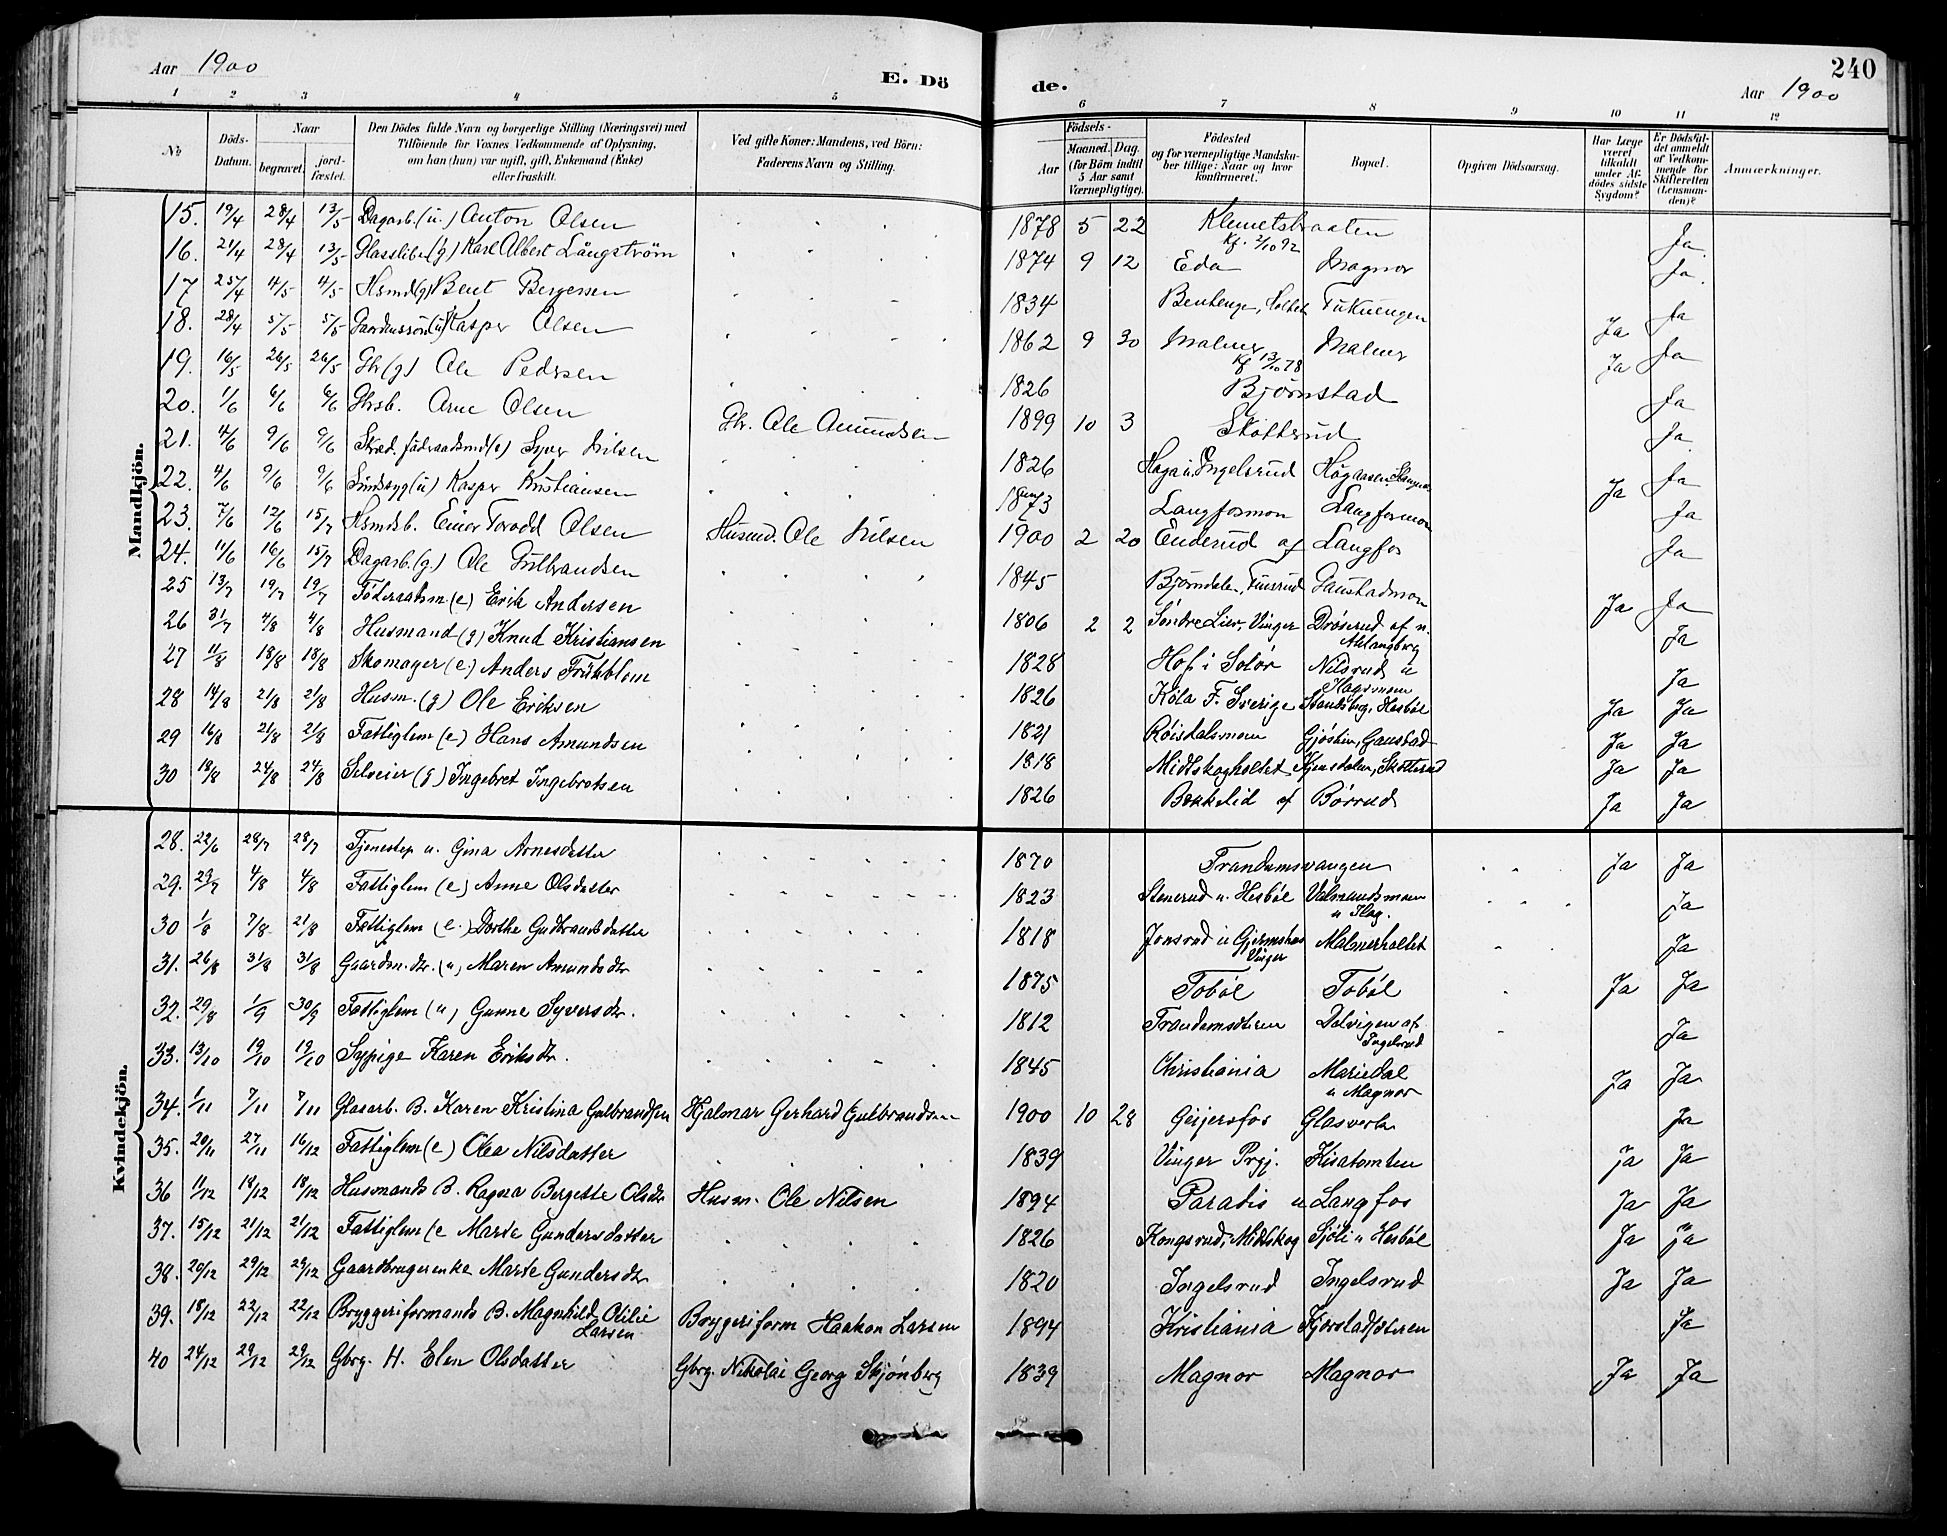 Aar 1900
E. Dö
de.
240
Aar 1900
1 2 3 4 5 6 7 8 9 10 11 12
No
Döds-Datum.
Naar
begravet.
jord-fæstet.
Den Dödes fulde Navn og borgerlige Stilling (Næringsvei) med
Tilföiende for Voxnes Vedkommende af Oplysning,
om han (hun) var ugift, gift, Enkemand (Enke)
eller fraskilt.
Ved gifte Koner: Mandens, ved Börn:
Faderens Navn og Stilling.
Födsels-
Aar
Maaned. Dag.
(for Börn indtil
5 Aar samt
Værnepligtige).
Födested
og for værnepligtige Mandskaber tillige: Naar og hvor
konfirmeret.
Bopæl.
Opgiven Dödsaarsag.
Har Læge
været
tilkaldt
under Afdödes sidste
Sygdom?
Er Dödsfaldet anmeldt
af Vedkommende for
Skifteretten
(Lensmanden)?
Anmærkninger.
Mandkjön.
15. 19/4 28/4 13/5 Dagarb. (u.) Anton Olsen 1878 5 22 Klemetsbraaten Kf. 2/10 92 Ja
16. 21/4 28/4 13/5 Karl Albert Långström 1874 9 12 Eda Magnor Ja
17 25/4 4/5 4/5 Hsmd (g) Bent Bergersen 1834 Ja
18. 28/4 5/5 5/5 Kasper Olsen 1862 9 30 Malmer Kf 13/10 78 Malmer Ja Ja
19. 16/5 26/5 26/5 Gbr (g) Ole Pedersen 1826 Bjørnstad Ja Ja
20. 1/6 6/6 6/6 Gbrsb. Arne Olsen Gbr. Ole Amundsen 1899 10 3 Skotterud Ja
21. 4/6 9/6 9/6 Syver Nilsen 1826 Ingelsrud Ja
22. 4/6 9/6 9/6 Sindssyg (u) Kasper Kristiansen 1873 Langfosmon Langfosmon Ja Ja
23. 7/6 12/6 15/7 Hsmdsb. Einar Torodd Olsen Husmd. Ole Nilsen 1900 2 20 Enderud af Langfos Ja
24. 11/6 16/6 15/7 Dagarb. (g.) Ole Gulbrandsen 1845 Gaustadmon Ja
25 13/7 19/7 19/7 Föderaadsm. (e) Erik Andersen 1806 2 2 Søndre Lier, Vinger Ja Ja
26 31/7 4/8 4/8 Husmand (g) Knud Kristiansen 1828 Hof i Solør Nilsrud Ja
27 11/8 18/8 18/8 Skomager (e.) Anders 1826 Køla F. Sverige Hesbøl Ja
28 14/8 21/8 21/8 Husm. (g) Ole Eriksen 1821 Gaustad Ja Ja
29 16/8 21/8 21/8 Fattiglem (e) Hans Amundsen 1818 Midtskogholtet Skotterud Ja Ja
30 18/8 24/8 24/8 Selveier (g) Ingebret Ingebretsen 1826 Bekkelid af Børrud Ja Ja
Kvindekjön.
28. 22/6 28/7 28/7 Tjenestep u. Gina Arnesdatter 1870 Trandemsvangen Ja Ja
29. 29/7 4/8 4/8 Fattiglem (e) Anne Olsdatter 1823 Stenerud u. Hesbøl Ja
30 1/8 7/8 21/8 Fattiglem (e.) Dorthe Gudbrandsdatter 1818 Vinger Malmerholtet Ja
31. 26/8 31/8 31/8 Gaardm. dr. (u) Maren Amundsdtr 1875 Tobøl Tobøl Ja Ja
32. 29/8 1/9 30/9 Fattiglem (u) Gunne Syversdr. 1812 Dalvigen af Ingelsrud Ja
33. 13/10 19/10 19/10 Sypige Karen Eriksdr. 1845 Christiania Mariedal u Magnor Ja Ja
34. 1/11 7/11 7/11 Glasarb. B. Karen Kristina Gulbrandsen Hjalmar Gerhard Gulbrandsen 1900 10 28 Geijersfos Glasverk Ja
35. 20/11 27/11 16/12 Fattiglem (e) Olea Nilsdatter 1839 Vinger Prgj. Kisatomten Ja Ja
36 11/12 18/12 18/12 Husmands B. Ragna Bergette Olsdr Husm. Ole Nilsen 1894 Paradis u Langfos Ja Ja
37. 15/12 21/12 21/12 Fattiglem (e Marte Gundersdatter 1826 Kongsrud, Midtskog Sjøli u Hesbøl Ja Ja
38. 20/12 29/12 29/12 Gaardbrugerenke Marte Gundersdr 1820 Ingelsrud Ingelsrud Ja Ja
39. 18/12 22/12 22/12 Bryggeriformands B. Magnhild Otilie Larsen Bryggeriform Haakon Larsen 1894 Kristiania Ja
40 24/12 29/12 29/12 Gbrg. H. Elen Olsdatter Gbrg. Nikolai Georg Skjønberg 1839 Magnor Magnor Ja Ja